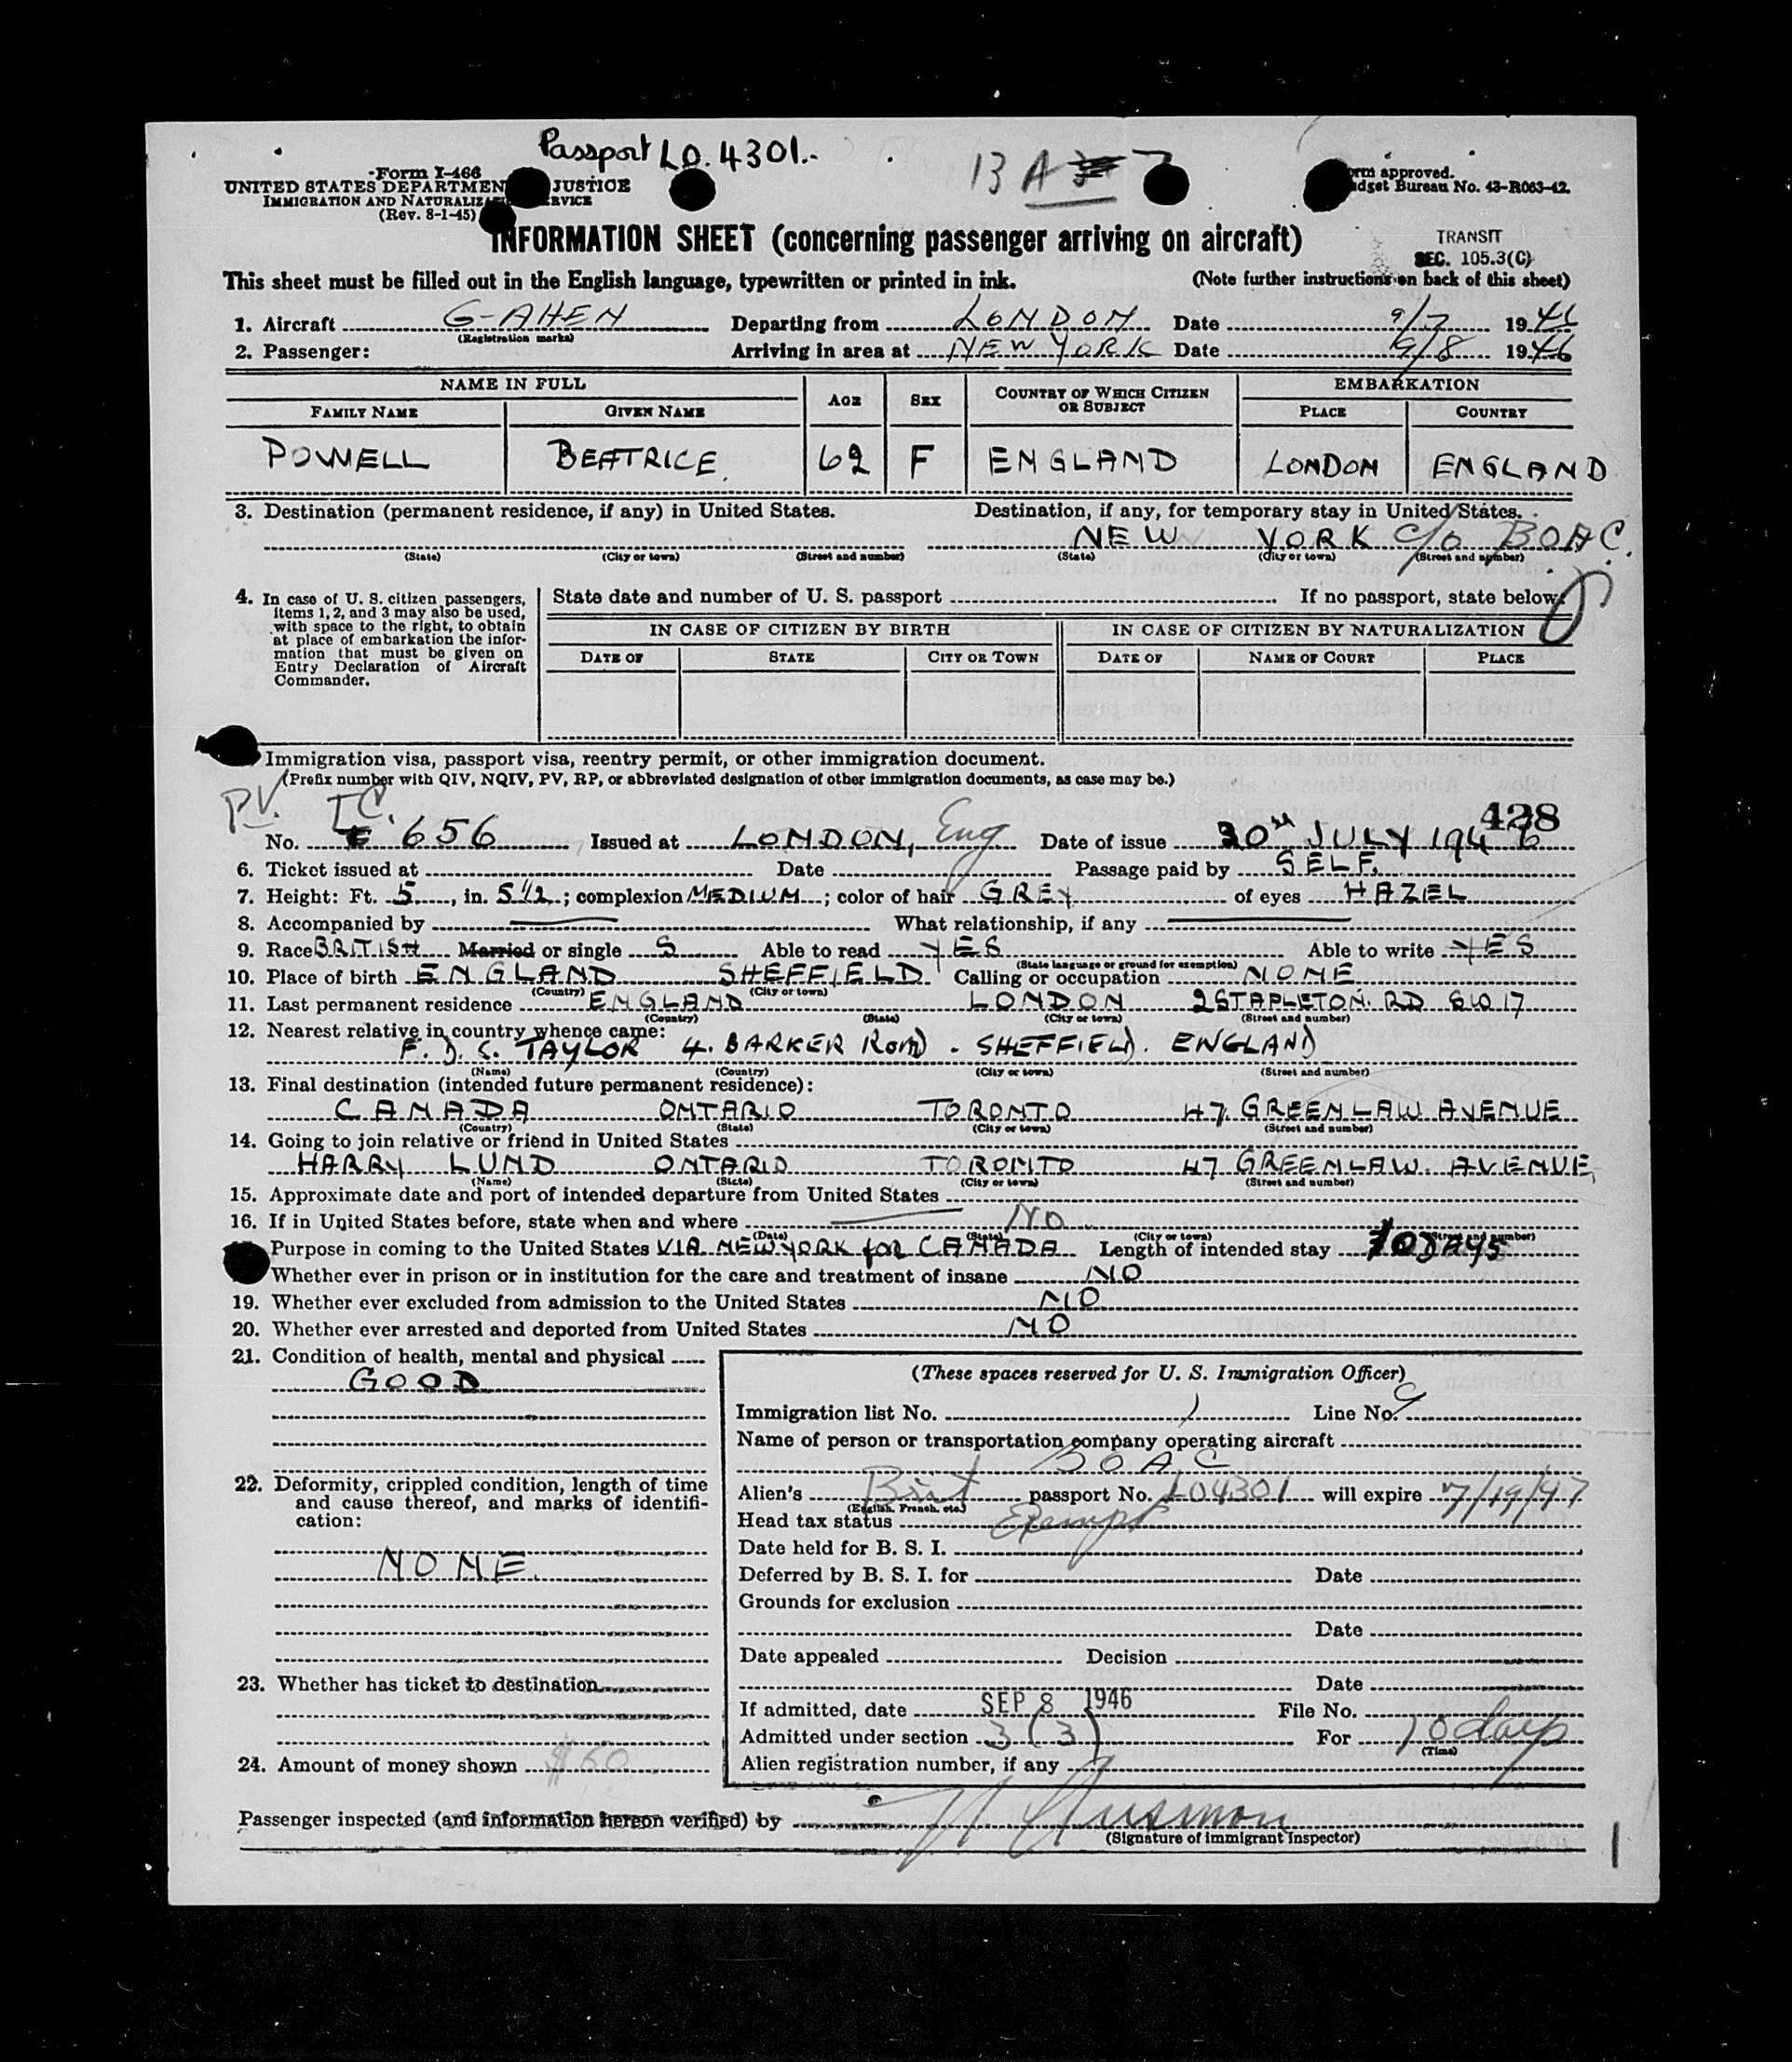 Passport LO. 4301.-
13 A
Form I-466
UNITED STATES DEPARTMEN JUSTICE
IMMIGRATION AND NATURALIZA ERVICE
(Rev. 8-1-45)
orm approved.
udget Bureau No. 43-R063-42.
INFORMATION SHEET (concerning passenger arriving on aircraft)
TRANSIT
SEC. 105.3(C)
This sheet must be filled out in the English language, typewritten or printed in ink. (Note further instructions on back of this sheet)
1. Aircraft G-AHEN Departing from LONDON Date 9/7 1946
(Registration marks)
2. Passenger: Arriving in area at NEW YORK Date 9/8 1946
NAME IN FULL AGE SEX COUNTRY OF WHICH CITIZEN OR SUBJECT EMBARKATION
FAMILY NAME GIVEN NAME PLACE COUNTRY
POWELL BEATRICE 62 F ENGLAND LONDON ENGLAND
3. Destination (permanent residence, if any) in United States. Destination, if any, for temporary stay in United States.
NEW YORK C/O BOAC.
(State) (City or town) (Street and number) (State) (City or town) (Street and number)
4. In case of U. S. citizen passengers, items 1, 2, and 3 may also be used, with space to the right, to obtain at place of embarkation the information that must be given on Entry Declaration of Aircraft Commander.
State date and number of U. S. passport If no passport, state below:
IN CASE OF CITIZEN BY BIRTH IN CASE OF CITIZEN BY NATURALIZATION
DATE OF STATE CITY OR TOWN DATE OF NAME OF COURT PLACE
Immigration visa, passport visa, reentry permit, or other immigration document.
(Prefix number with QIV, NQIV, PV, RP, or abbreviated designation of other immigration documents, as case may be.)
PV. TC. 428
No. 656 Issued at LONDON, Eng Date of issue 30th JULY 1946
6. Ticket issued at Date Passage paid by SELF.
7. Height: Ft. 5, in. 5 1/2; complexion MEDIUM; color of hair GREY of eyes HAZEL
8. Accompanied by What relationship, if any
9. Race BRITISH Married or single S Able to read YES Able to write YES
(State language or ground for exemption)
10. Place of birth ENGLAND SHEFFIELD Calling or occupation NONE
(Country) (City or town)
11. Last permanent residence ENGLAND LONDON 2 STAPLETON. RD S.W. 17
(Country) (State) (City or town) (Street and number)
12. Nearest relative in country whence came:
F. D. S. TAYLOR 4. BARKER ROAD. SHEFFIELD. ENGLAND
(Name) (Country) (City or town) (Street and number)
13. Final destination (intended future permanent residence):
CANADA ONTARIO TORONTO 47. GREENLAW AVENUE
(Country) (State) (City or town) (Street and number)
14. Going to join relative or friend in United States
HARRY LUND ONTARIO TORONTO 47 GREENLAW. AVENUE
(Name) (State) (City or town) (Street and number)
15. Approximate date and port of intended departure from United States
16. If in United States before, state when and where NO
(Date) (State) (City or town) (Street and number)
Purpose in coming to the United States VIA NEW YORK for CANADA Length of intended stay 10 DAYS
Whether ever in prison or in institution for the care and treatment of insane NO
19. Whether ever excluded from admission to the United States NO
20. Whether ever arrested and deported from United States NO
21. Condition of health, mental and physical
GOOD
22. Deformity, crippled condition, length of time and cause thereof, and marks of identification:
NONE.
23. Whether has ticket to destination
24. Amount of money shown $60
(These spaces reserved for U. S. Immigration Officer)
Immigration list No. 1 Line No. 9
Name of person or transportation company operating aircraft
BOAC
Alien's Brit passport No. LO4301 will expire 7/19/47
(English, French, etc.)
Head tax status Exempt
Date held for B. S. I.
Deferred by B. S. I. for Date
Grounds for exclusion
Date
Date appealed Decision
Date
If admitted, date SEP 8 1946 File No.
Admitted under section 3 (3) For 10 days
(Time)
Alien registration number, if any
Passenger inspected (and information hereon verified) by
(Signature of Immigrant Inspector)